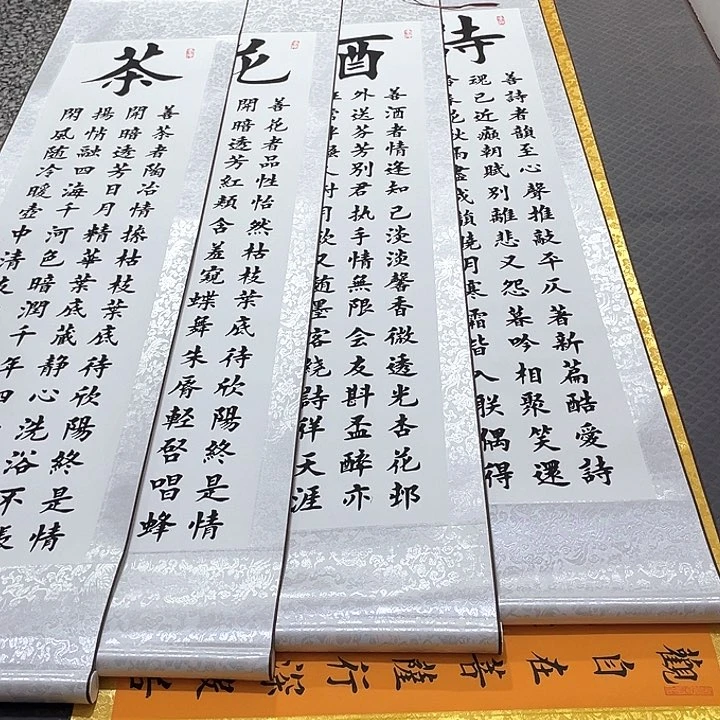 善詩者韻至心聲推敲平仄著新篇酷愛詩
瑰已近癲朝賦別離悲又怨暮吟相聚笑還
月寒霜皆入朕偶得
酒
善酒者情逢知己淡淡馨香微透光杏花邨
外送芬芳別君执手情無限会友斟盃醉亦
随墨客繞詩徉天涯
花
善花者品性怡然枯枝葉底待欣陽終是情
開暗透芳紅頰含羞窺蝶舞朱唇輕啓唱蜂
茶
善茶者陶冶情操枯枝葉底待欣陽終是情
開暗透芳日月精華葉底蔵靜心洗浴不張
揚情融四海千河色暗潤千年四
閑戚随冷暖壺中清
觀自在菩薩行深